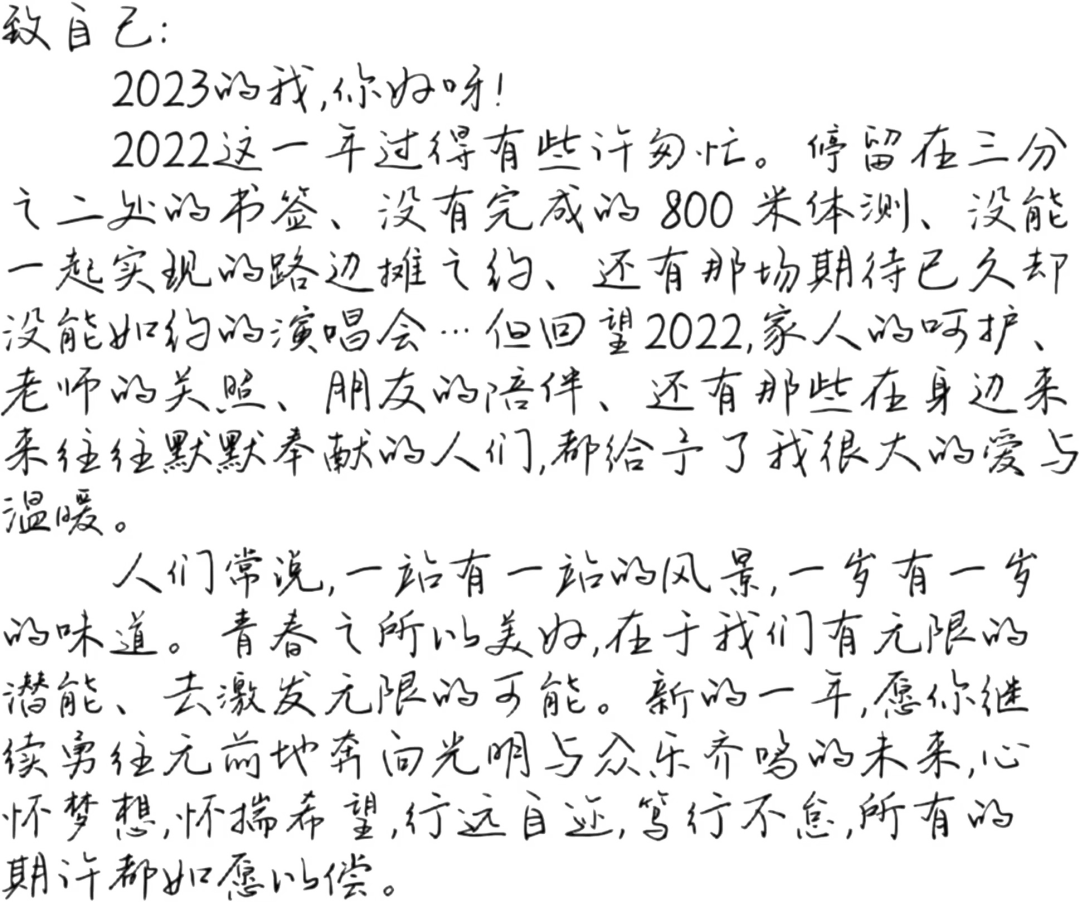 致自己:
2023的我,你好呀!
2022这一年过得有些许匆忙。停留在三分
之二处的书签、没有完成的800米体测、没能
一起实现的路边摊之约、还有那场期待已久却
没能如约的演唱会…但回望2022,家人的呵护、
老师的关照、朋友的陪伴、还有那些在身边来
来往往默默奉献的人们,都给予了我很大的爱与
温暖。
人们常说,一站有一站的风景,一岁有一岁
的味道。青春之所以美好,在于我们有无限的
潜能、去激发无限的可能。新的一年,愿你继
续勇往无前地奔向光明与众乐齐鸣的未来,心
怀梦想,怀揣希望,行远自迩,笃行不怠,所有的
期许都如愿以偿。